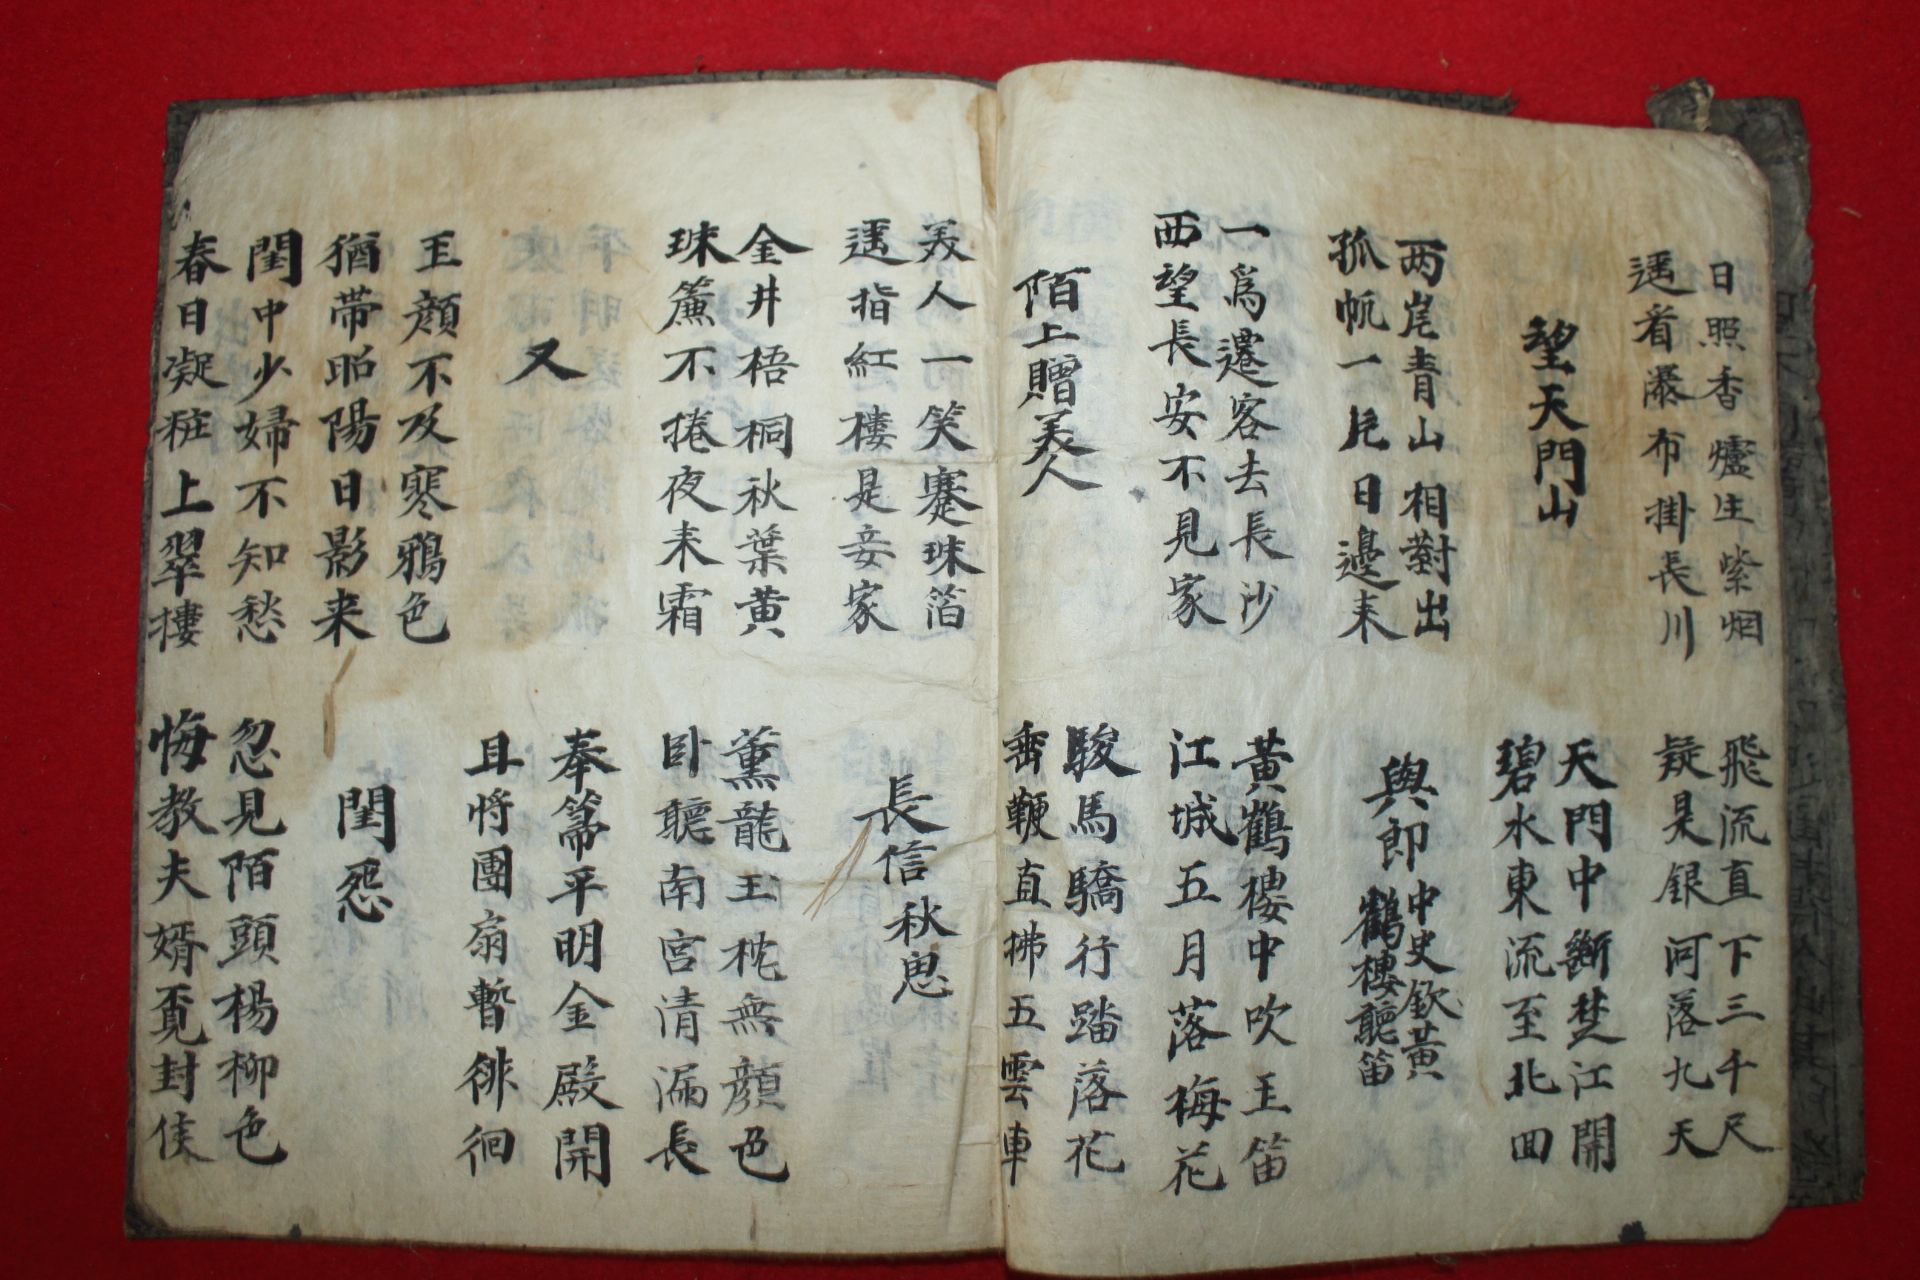 日照香爐生紫烟
遥看瀑布掛長川
飛流直下三千尺
疑是銀河落九天
望天門山
天門中斷楚江開
碧水東流至北回
两岸青山相對出
孤帆一片日邊来
與郎中史欽黃
鶴樓聽笛
一爲遷客去長沙
西望長安不見家
黃鶴樓中吹王笛
江城五月落梅花
陌上贈美人
駿馬驕行踏落花
垂鞭直拂五雲車
美人一笑蹇珠箔
遥指紅樓是妾家
長信秋思
金井梧桐秋葉黄
珠簾不捲夜来霜
薰龍玉枕無顔色
卧聽南宮清漏長
又
奉箒平明金殿開
且將團扇暫徘徊
王顔不及寒鴉色
猶帶昭陽日影来
閨怨
閨中少婦不知愁
春日凝粧上翠樓
忽見陌頭楊柳色
悔教夫婿覓封侯